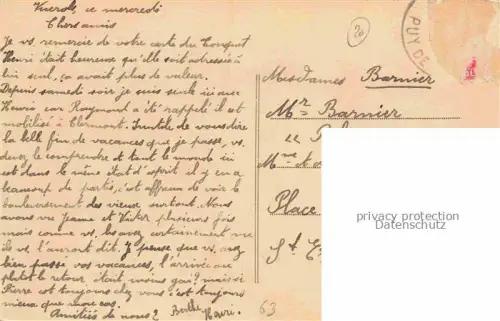 ce mercredi
Chers amis
Je vs. remercie de votre carte du Conquet
Henri était heureuse qu'elle soit adressée à
lui seul, ça avait plus de valeur.
Depuis samedi soir je suis seule ici avec
Henri car Raymond a été rappelé il est
mobilisé à Clermont. Inutile de vous dire
la belle fin de vacances que je passe, vs.
devez le comprendre et tout le monde ici
est dans le même état d'esprit il y en a
beaucoup de partis, c'est affreux de voir le
bouleversement des vieux surtout. Nous
avons vu Jeanne et Victor plusieurs fois
mais comme vs. les avez certainement vu
ils vs. l'auront dit. Je pense que vs. avez
bien passé vos vacances, l'arrivée au
plutot le retour, était moins gai? mais si
Pierre est toujours chez vous c'est toujours
mieux que mon cas.
Amitiés de nous 2 Berthe
Henri.
20
PUY DE
Mesdames Barnier
Mr. Barnier
Place
St E
63
privacy protection
Datenschutz